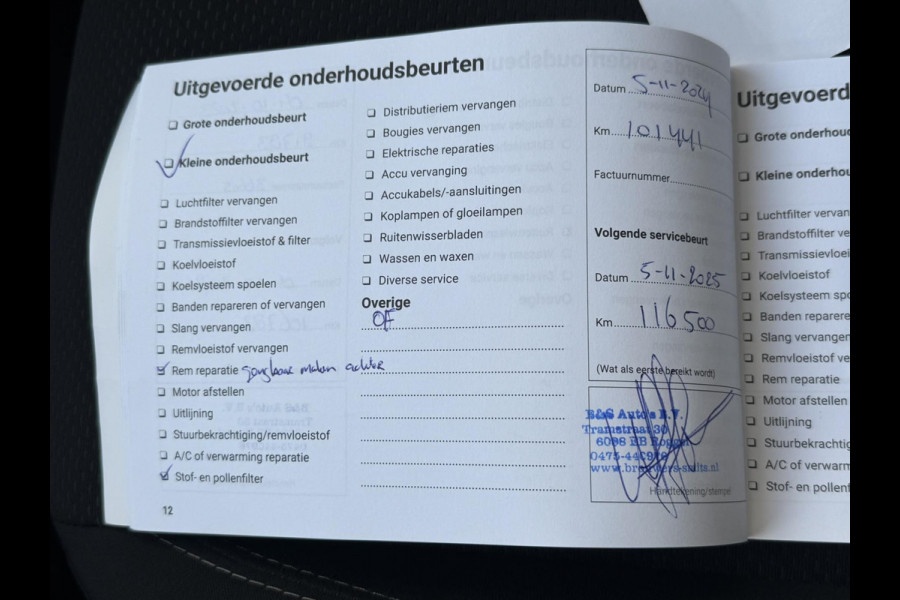 Uitgevoerde onderhoudsbeurten
Grote onderhoudsbeurt
Kleine onderhoudsbeurt
Luchtfilter vervangen
Brandstoffilter vervangen
Transmissievloeistof & filter
Koelvloeistof
Koelsysteem spoelen
Banden repareren of vervangen
Slang vervangen
Remvloeistof vervangen
Rem reparatie gangbaar maken achter
Motor afstellen
Uitlijning
Stuurbekrachtiging/remvloeistof
A/C of verwarming reparatie
Stof- en pollenfilter
12
Distributieriem vervangen
Bougies vervangen
Elektrische reparaties
Accu vervanging
Accukabels/-aansluitingen
Koplampen of gloeilampen
Ruitenwisserbladen
Wassen en waxen
Diverse service
Overige
OF
Datum 5-11-2024
Km 101441
Factuurnummer
Volgende servicebeurt
Datum 5-11-2025
Km 116500
(Wat als eerste bereikt wordt)
B&S Auto's B.V.
Tramstraat 30
6098 EB
0475-
Handtekening/stempel
Uitgevoerd
Grote onderhou
Kleine onderhou
Luchtfilter vervan
Brandstoffilter ve
Transmissievloei
Koelvloeistof
Koelsysteem spo
Banden reparere
Slang vervangen
Remvloeistof ve
Rem reparatie
Motor afstellen
Uitlijning
Stuurbekrachtig
A/C of verwarm
Stof- en pollenf